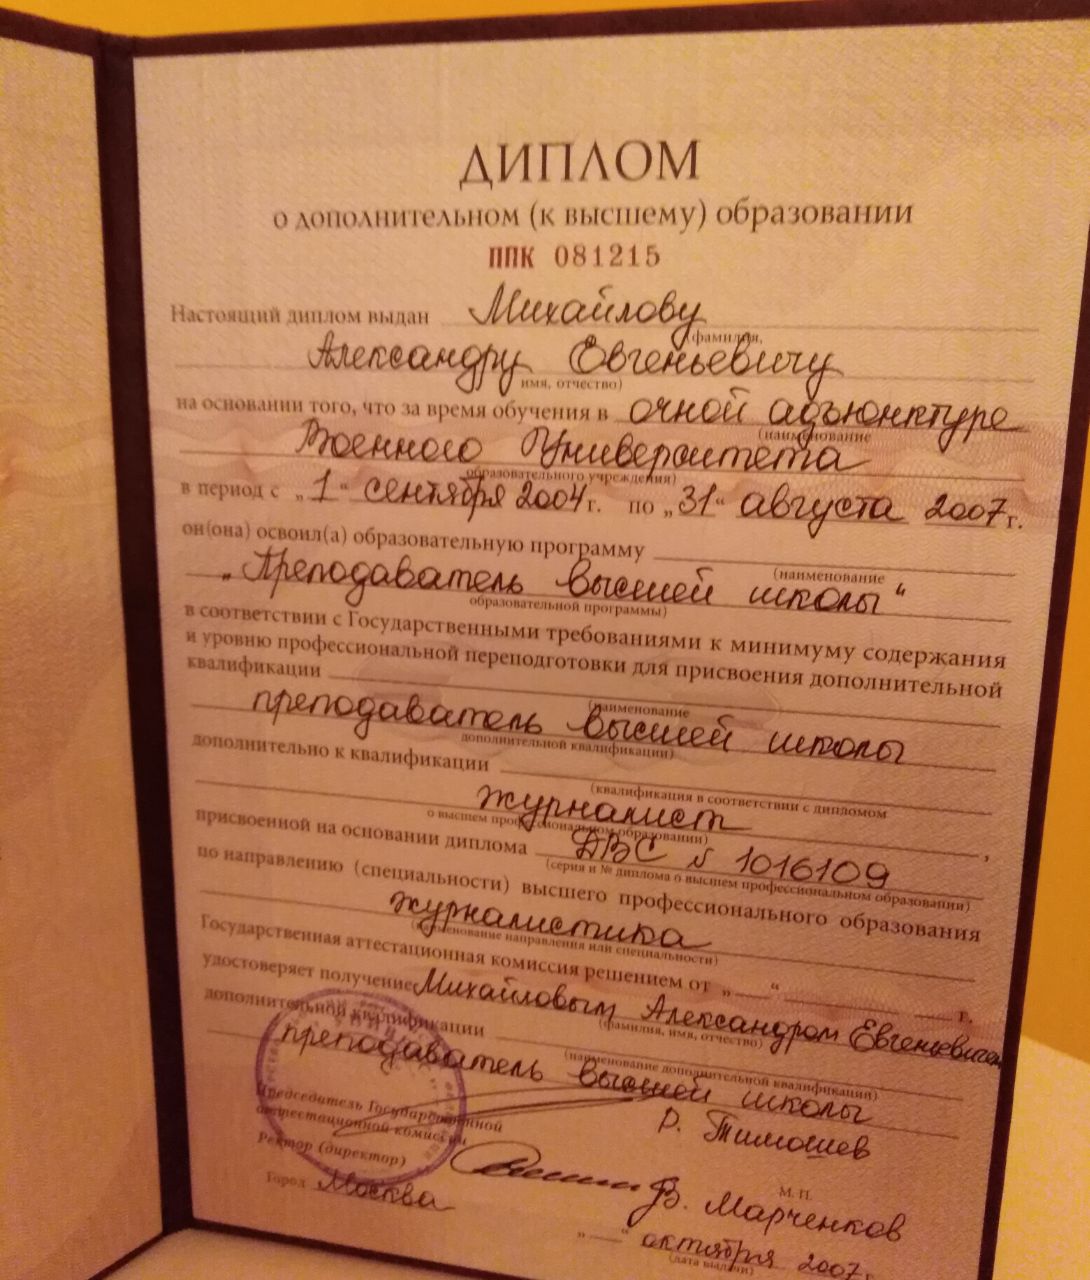 ДИПЛОМ
о дополнительном (к высшему) образовании
ППК 081215
Настоящий диплом выдан Михайлову
(фамилия,
Александру Евгеньевичу
имя, отчество)
на основании того, что за время обучения в очной адъюнктуре
(наименование
Военного Университета
образовательного учреждения)
в период с „1“ сентября 2004 г. по „31“ августа 2007 г.
он(она) освоил(а) образовательную программу
(наименование
„Преподаватель высшей школы“
образовательной программы)
в соответствии с Государственными требованиями к минимуму содержания
и уровню профессиональной переподготовки для присвоения дополнительной
квалификации
(наименование
преподаватель высшей школы
дополнительной квалификации)
дополнительно к квалификации
(квалификация в соответствии с дипломом
журналист
о высшем профессиональном образовании)
присвоенной на основании диплома ДВС № 1016109,
(серия и № диплома о высшем профессиональном образовании)
по направлению (специальности) высшего профессионального образования
журналистика
(наименование направления или специальности)
Государственная аттестационная комиссия решением от „ “ г.
удостоверяет получение Михайловым Александром Евгеньевичем
(фамилия, имя, отчество)
дополнительной квалификации
(наименование дополнительной квалификации)
преподаватель высшей школы
Председатель Государственной
аттестационной комиссии Р. Тимошев
Ректор (директор) В. Марченков
М. П.
Город Москва
„ “ октября 2007 г.
(дата выдачи)